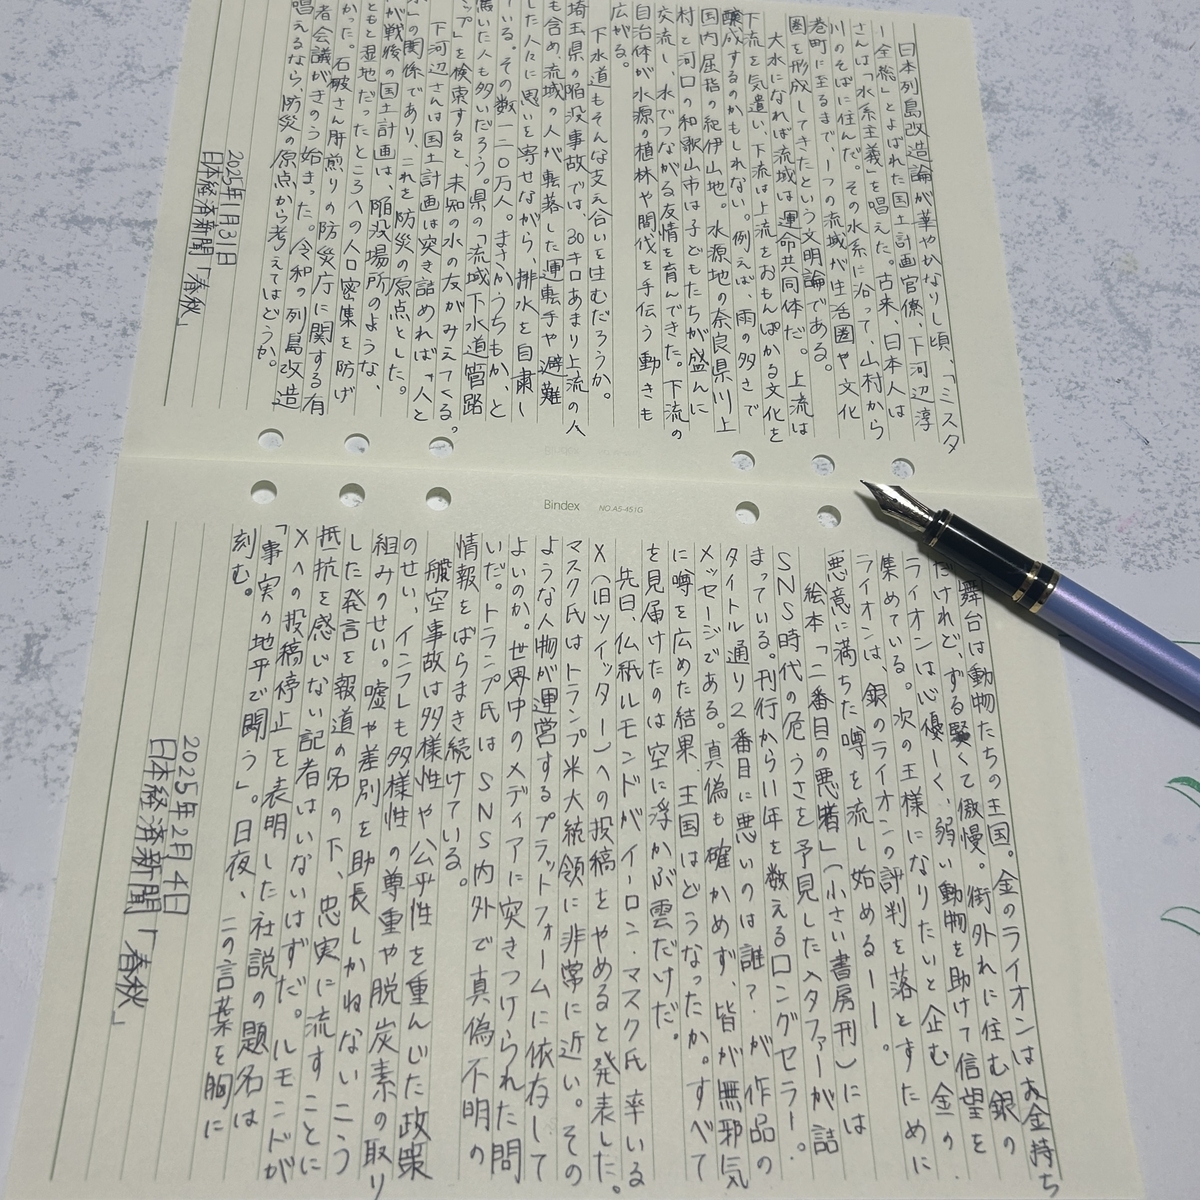 日本列島改造論が華やかなりし頃、「ミスタ
ー全総」とよばれた国土計画官僚、下河辺淳
さんは「水系主義」を唱えた。古来、日本人は
川のそばに住んだ。その水系に沿って、山村から
港町に至るまで、一つの流域が生活圏や文化
圏を形成してきたという文明論である。
大水になれば流域は運命共同体だ。上流は
下流を気遣い、下流は上流をおもんぱかる文化を
醸成するのかもしれない。例えば、雨の多さで
国内屈指の紀伊山地。水源地の奈良県川上
村と河口の和歌山市は子どもたちが盛んに
交流し、水でつながる友情を育んできた。下流の
自治体が水源の植林や間伐を手伝う動きも
広がる。
下水道もそんな支え合いを生むだろうか。
埼玉県の陥没事故では、30キロあまり上流の人
も含め流域の人が転落した運転手や避難
した人々に思いを寄せながら、排水を自粛し
ている。その数一二〇万人。まさかうちもか、と
驚いた人も多いだろう。県の「流域下水道管路
マップ」を検索すると、未知の水の友がみえてくる。
下河辺さんは国土計画は突き詰めれば「人と
水」の関係であり、これを防災の原点とした。
が戦後の国土計画は、陥没場所のような、
もともと湿地だったところへの人口密集を防げ
なかった。石破さん肝煎りの防災庁に関する有
識者会議がきのう始まった。令和の列島改造
を唱えるなら、防災の原点から考えてはどうか。
2025年1月31日
日本経済新聞「春秋」
Bindex NO.A5-451G
舞台は動物たちの王国。金のライオンはお金持ち
だけれど、ずる賢くて傲慢。街外れに住む銀の
ライオンは心優しく、弱い動物を助けて信望を
集めている。次の王様になりたいと企む金の
ライオンは、銀のライオンの評判を落とすために
悪意に満ちた噂を流し始めるーー。
絵本「二番目の悪者」（小さい書房刊）には
SNS時代の危うさを予見したメタファーが詰
まっている。刊行から11年を数えるロングセラー。
タイトル通り2番目に悪いのは誰？が作品の
メッセージである。真偽も確かめず、皆が無邪気
に噂を広めた結果、王国はどうなったか。すべて
を見届けたのは空に浮かぶ雲だけだ。
先日、仏紙ルモンドがイーロン・マスク氏率いる
X（旧ツイッター）への投稿をやめると発表した。
マスク氏はトランプ米大統領に非常に近い。その
ような人物が運営するプラットフォームに依存して
よいのか。世界中のメディアに突きつけられた問
いだ。トランプ氏はSNS内外で真偽不明の
情報をばらまき続けている。
航空事故は多様性や公平性を重んじた政策
のせい、インフレも多様性の尊重や脱炭素の取り
組みのせい。嘘や差別を助長しかねないこう
した発言を報道の名の下、忠実に流すことに
抵抗を感じない記者はいないはずだ。ルモンドが
Xへの投稿停止を表明した社説の題名は
「事実の地平で闘う」。日夜、この言葉を胸に
刻む。
2025年2月4日
日本経済新聞「春秋」